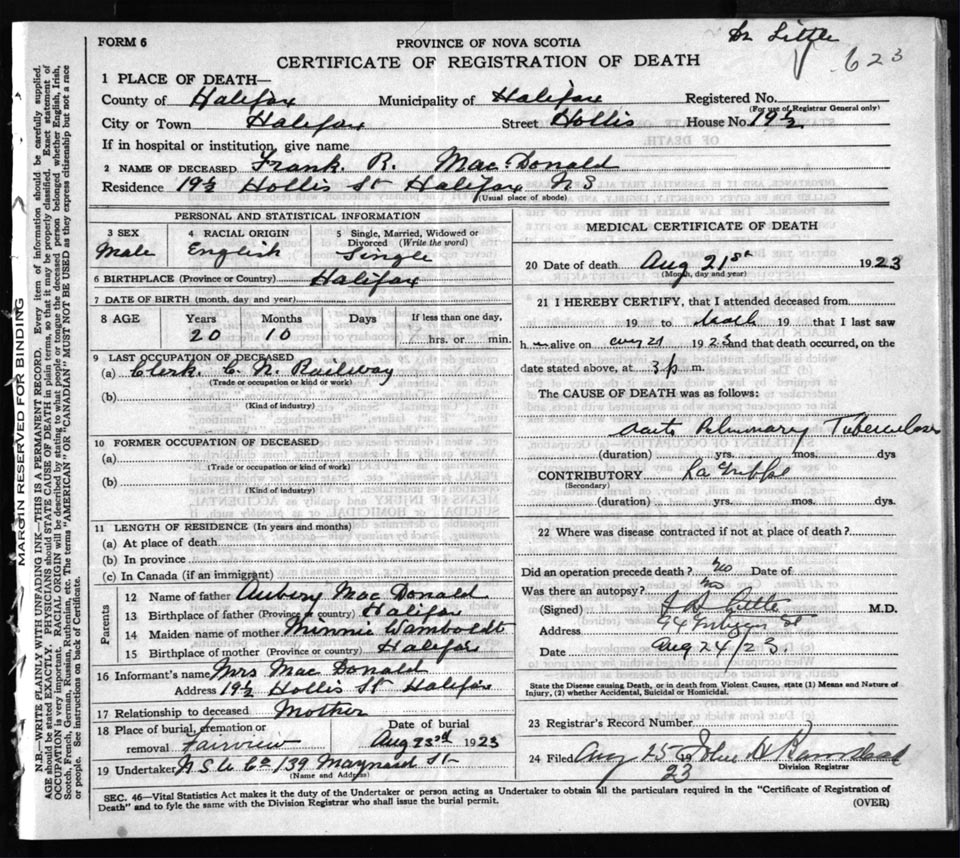 Dr Little
623
FORM 6
PROVINCE OF NOVA SCOTIA
CERTIFICATE OF REGISTRATION OF DEATH
1 PLACE OF DEATH—
County of Halifax Municipality of Halifax Registered No.
(For use of Registrar General only)
City or Town Halifax Street Hollis House No. 19½
If in hospital or institution, give name
2 NAME OF DECEASED Frank R. MacDonald
Residence 19½ Hollis St Halifax N S
(Usual place of abode)
PERSONAL AND STATISTICAL INFORMATION
3 SEX 4 RACIAL ORIGIN 5 Single, Married, Widowed or Divorced (Write the word)
Male English Single
6 BIRTHPLACE (Province or Country) Halifax
7 DATE OF BIRTH (month, day and year)
8 AGE Years Months Days If less than one day,
20 10 hrs. or min.
9 LAST OCCUPATION OF DECEASED
(a) Clerk. C. N. Railway
(Trade or occupation or kind of work)
(b)
(Kind of industry)
10 FORMER OCCUPATION OF DECEASED
(a)
(Trade or occupation or kind of work)
(b)
(Kind of industry)
11 LENGTH OF RESIDENCE (In years and months)
(a) At place of death
(b) In province
(c) In Canada (if an immigrant)
Parents
12 Name of father Aubery Mac Donald
13 Birthplace of father (Province or country) Halifax
14 Maiden name of mother Minnie Wamboldt
15 Birthplace of mother (Province or country) Halifax
16 Informant's name Mrs Mac Donald
Address 19½ Hollis St Halifax
17 Relationship to deceased Mother
18 Place of burial, cremation or removal Fairview Date of burial Aug 23rd 1923
19 Undertaker N.S.U. Co 139 Maynard St
(Name and Address)
MEDICAL CERTIFICATE OF DEATH
20 Date of death Aug 21st 1923
(Month, day and year)
21 I HEREBY CERTIFY, that I attended deceased from
19 to death 19 that I last saw
h m alive on Aug 21 1923 and that death occurred, on the
date stated above, at 3 p m.
The CAUSE OF DEATH was as follows:
Acute Pulmonary Tuberculosis
(duration) yrs. mos. dys
CONTRIBUTORY La Grippe
(Secondary)
(duration) yrs. mos. dys.
22 Where was disease contracted if not at place of death?
Did an operation precede death? No Date of
Was there an autopsy? No
(Signed) Little M.D.
Address
Date Aug 24/23.
State the Disease Causing Death, or in death from Violent Causes, state (1) Means and Nature of
Injury, (2) whether Accidental, Suicidal or Homicidal.
23 Registrar's Record Number
24 Filed Aug 25 19 23 John
Division Registrar
SEC. 46—Vital Statistics Act makes it the duty of the Undertaker or person acting as Undertaker to obtain all the particulars required in the "Certificate of Registration of
Death" and to fyle the same with the Division Registrar who shall issue the burial permit.
(OVER)
MARGIN RESERVED FOR BINDING
N.B.—WRITE PLAINLY WITH UNFADING INK—THIS IS A PERMANENT RECORD. Every item of information should be carefully supplied.
AGE should be stated EXACTLY. PHYSICIANS should STATE CAUSE OF DEATH in plain terms, so that it may be properly classified. Exact statement of
OCCUPATION is very important. RACIAL ORIGIN will be described by stating to what people or tongue the deceased person belonged whether English, Irish,
Scotch, French, German, Russian, Ruthenian, etc. The terms "AMERICAN" OR "CANADIAN" MUST NOT BE USED as they express citizenship but not a race
or people. See instructions on back of Certificate.